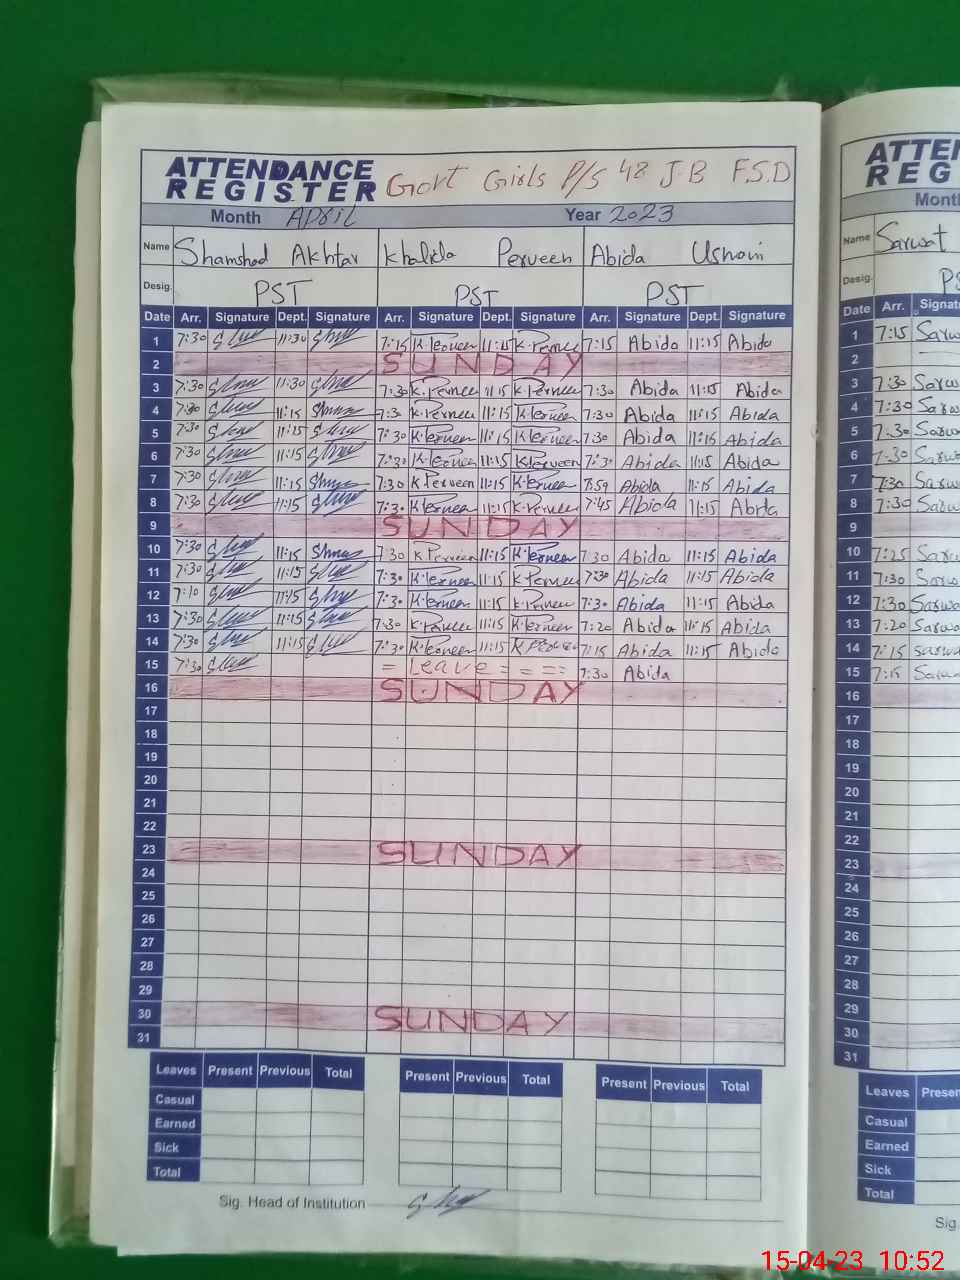 ATTENDANCE REGISTER Govt Girls P/S 48 J.B F.S.D
Month April Year 2023
Name Shamshad Akhtar Khalida Perveen Abida Usnain
Desig. PST PST PST
Date Arr. Signature Dept. Signature Arr. Signature Dept. Signature Arr. Signature Dept. Signature
1 7:30 11:30 7:15 K.Perveen 11:15 K.Perveen 7:15 Abida 11:15 Abida
2 SUNDAY
3 7:30 11:30 7:30 K.Perveen 11:15 K.Perveen 7:30 Abida 11:15 Abida
4 7:30 11:15 7:3 K.Perveen 11:15 K.Perveen 7:30 Abida 11:15 Abida
5 7:30 11:15 7:30 K.Perveen 11:15 K.Perveen 7:30 Abida 11:15 Abida
6 7:30 11:15 7:30 K.Perveen 11:15 K.Perveen 7:30 Abida 11:15 Abida
7 7:30 11:15 7:30 K Perveen 11:15 K.Perveen 7:59 Abida 11:15 Abida
8 7:30 11:15 7:30 K.Perveen 11:15 K.Perveen 7:45 Abida 11:15 Abida
9 SUNDAY
10 7:30 11:15 7:30 K Perveen 11:15 K.Perveen 7:30 Abida 11:15 Abida
11 7:30 11:15 7:30 K.Perveen 11:15 K.Perveen 7:30 Abida 11:15 Abida
12 7:10 11:15 7:30 K.Perveen 11:15 K.Perveen 7:30 Abida 11:15 Abida
13 7:30 11:15 7:30 K.Perveen 11:15 K.Perveen 7:20 Abida 11:15 Abida
14 7:30 11:15 7:30 K.Perveen 11:15 K Perveen 7:15 Abida 11:15 Abida
15 7:30 = Leave = = = = 7:30 Abida
16 SUNDAY
17
18
19
20
21
22
23 SUNDAY
24
25
26
27
28
29
30 SUNDAY
31
Leaves Present Previous Total Present Previous Total Present Previous Total
Casual
Earned
Sick
Total
Sig. Head of Institution
ATTEN
REG
Month
Name Sarwat
Desig. PS
Date Arr. Signat
1 7:15 Sarw
2
3 7:30 Sarw
4 7:30 Sarw
5 7:30 Sarw
6 7:30 Sarw
7 7:30 Sarw
8 7:30 Sarw
9
10 7:25 Sarw
11 7:30 Sarw
12 7:30 Sarw
13 7:20 Sarwa
14 7:15 Sarwa
15 7:15 Sarwa
16
17
18
19
20
21
22
23
24
25
26
27
28
29
30
31
Leaves Presen
Casual
Earned
Sick
Total
Sig.
15-04-23 10:52